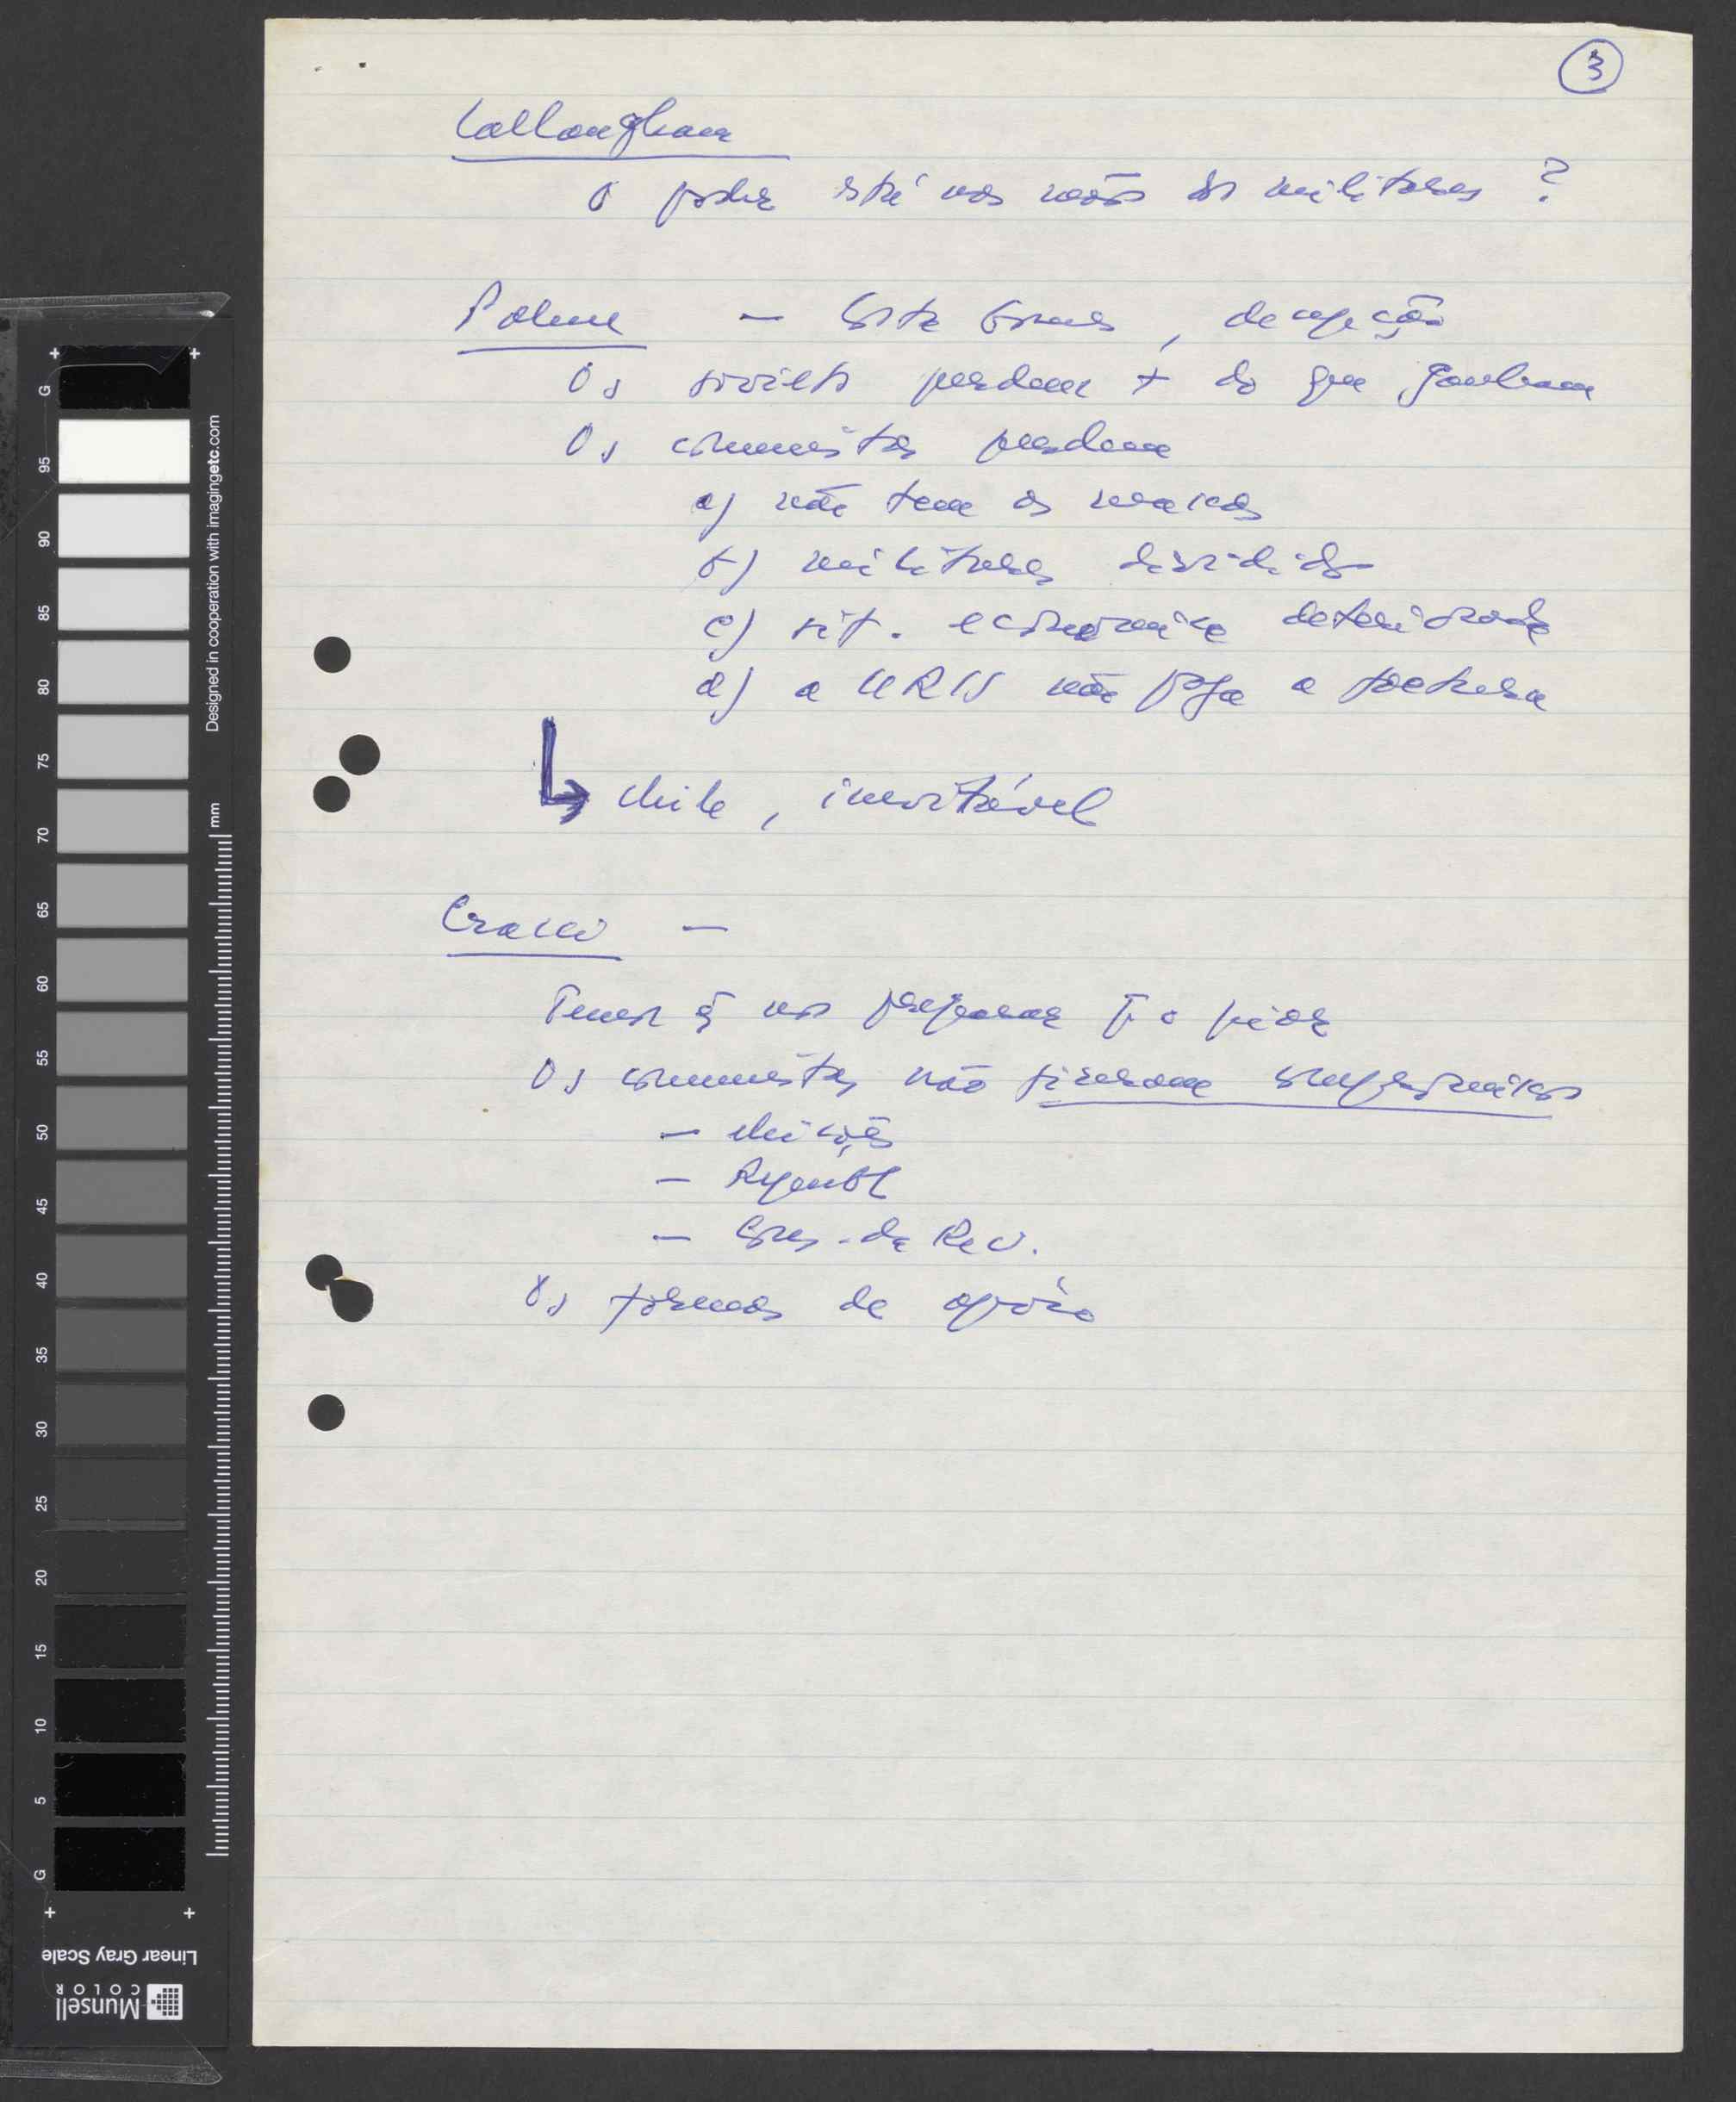 3
Callaughan
O poder está nas mãos dos militares ?
Palme — Costa Gomes, decepção
Os soviets perdem + do que ganham
Os comunistas perdem
a) não tem as massas
b) militares divididos
c) sit. económica deteriorada
d) a URSS não paga a factura
Chile, inevitável
Craxi —
Temos q̃ nos preparar p̃ o pior
Os comunistas não fizeram compromissos
— eleições
— Republ
— Cons. da Rev.
As formas de apoio
G
95
90
85
80
75
70
65
60
55
50
45
40
35
30
25
20
15
10
5
G
Designed in cooperation with imagingetc.com
mm
Linear Gray Scale
Munsell
COLOR